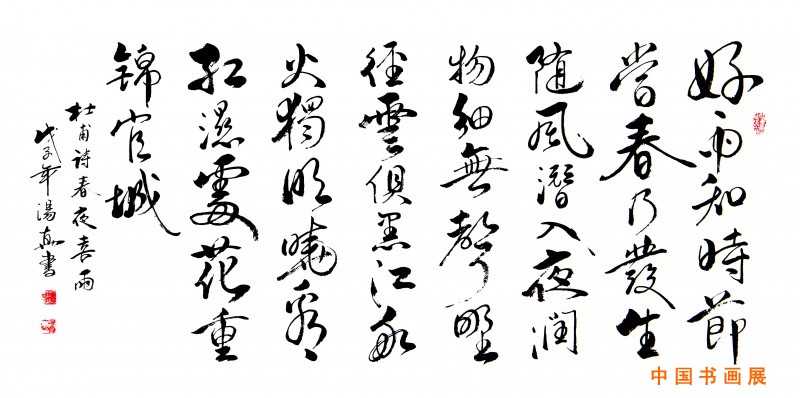 好雨知時節
當春乃發生
随風潛入夜潤
物細無聲野
徑雲俱黑江船
火獨明曉看
紅濕處花重
錦官城
杜甫詩春夜喜雨
戊子年湯書
中国书画展